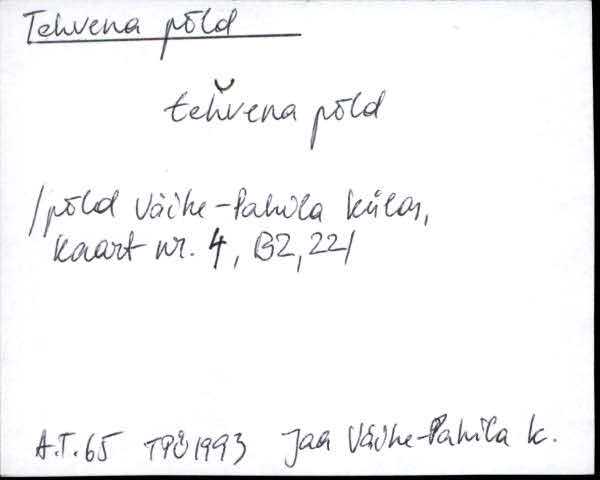 Tehvena põld
teh̆vena põld
/põld Väike-Pahila külas,
kaart nr. 4, B2, 22/
A.T. 65 TPÜ 1993 Jaa Väike-Pahila k.